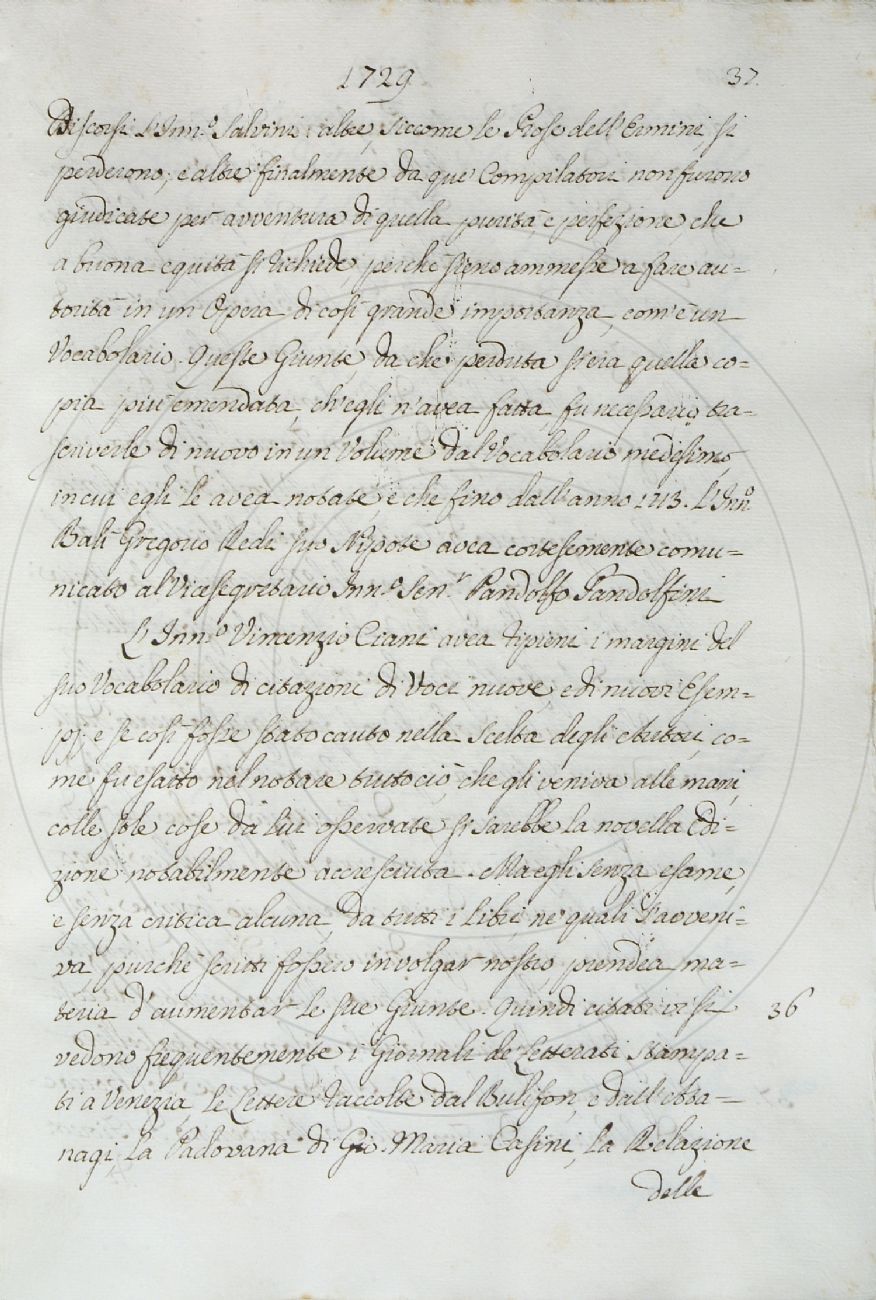 1729
37.
Discorsi L'Inn.º Salvini; altre, siccome le Prose dell'Ermini, si
perderono; e altre finalmente da que' Compilatori non furono
giudicate per avventura di quella purità, e perfezione, che
a buona equità si richiede, perchè sieno ammesse a fare au-
torità in un'Opera di così grande importanza, com'è un
Vocabolario. Queste Giunte, da che perduta s'era quella co-
pia più emendata, ch'egli n'avea fatta, fu necessario tra-
scriverle di nuovo in un Volume dal Vocabolario medesimo,
in cui egli le avea notate e che fino dall'anno 1713. L'Inn.º
Balì Gregorio Redi suo Nipote avea cortesemente comu-
nicato al Vicesegretario Inn.º Sen.r Pandolfo Pandolfini
L'Inn.º Vincenzio Ciani avea ripieni i margini del
suo Vocabolario di citazioni di Voci nuove, e di nuovi Esem-
pj; e se così fosse stato cauto nella scelta degli Autori, co-
me fu esatto nel notare tutto ciò, che gli veniva alle mani,
colle sole cose da lui osservate si sarebbe la novella Edi-
zione notabilmente accresciuta. Ma egli senza esame,
e senza critica alcuna, da tutti i Libri ne' quali s'avveni-
va, purchè scritti fossero in volgar nostro, prendea ma-
teria d'aumentar le sue Giunte. Quindi citati vi si
36
vedono frequentemente i Giornali de' Letterati stampa-
ti a Venezia, le Lettere raccolte dal Bulifon, e dall'Atta-
nagi, la Padovana di Gio. Maria Casini, la Relazione
delle